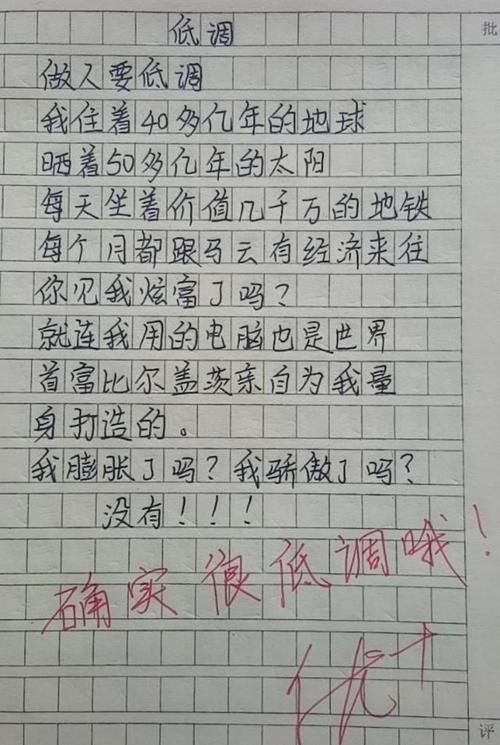 批
低调
做人要低调
我住着40多亿年的地球
晒着50多亿年的太阳
每天坐着价值几千万的地铁
每个月都跟马云有经济来往
你见我炫富了吗？
就连我用的电脑也是世界
首富比尔盖茨亲自为我量
身打造的。
我膨胀了吗？我骄傲了吗？
没有！！！
确实很低调哦！
优+
评